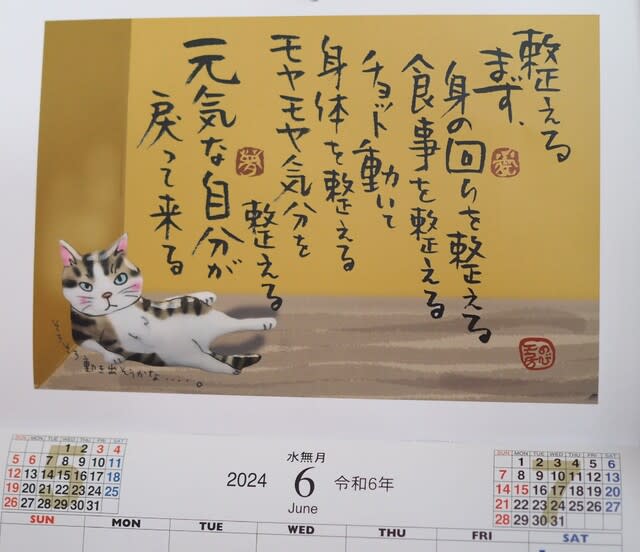 整える
まず、
身の回りを整える
食事を整える
チョット動いて
身体を整える
モヤモヤ気分を
整える
元気な自分が
戻って来る
愛
夢
そろそろ
動き出そうかな.....。
SUN MON TUE WED THU FRI SAT
1 2 3 4
5 6 7 8 9 10 11
12 13 14 15 16 17 18
19 20 21 22 23 24 25
26 27 28 29 30 31
水無月
2024 6 令和6年
June
SUN MON TUE WED THU FRI SAT
1 2 3 4 5 6
7 8 9 10 11 12 13
14 15 16 17 18 19 20
21 22 23 24 25 26 27
28 29 30 31
SUN MON TUE WED THU FRI SAT